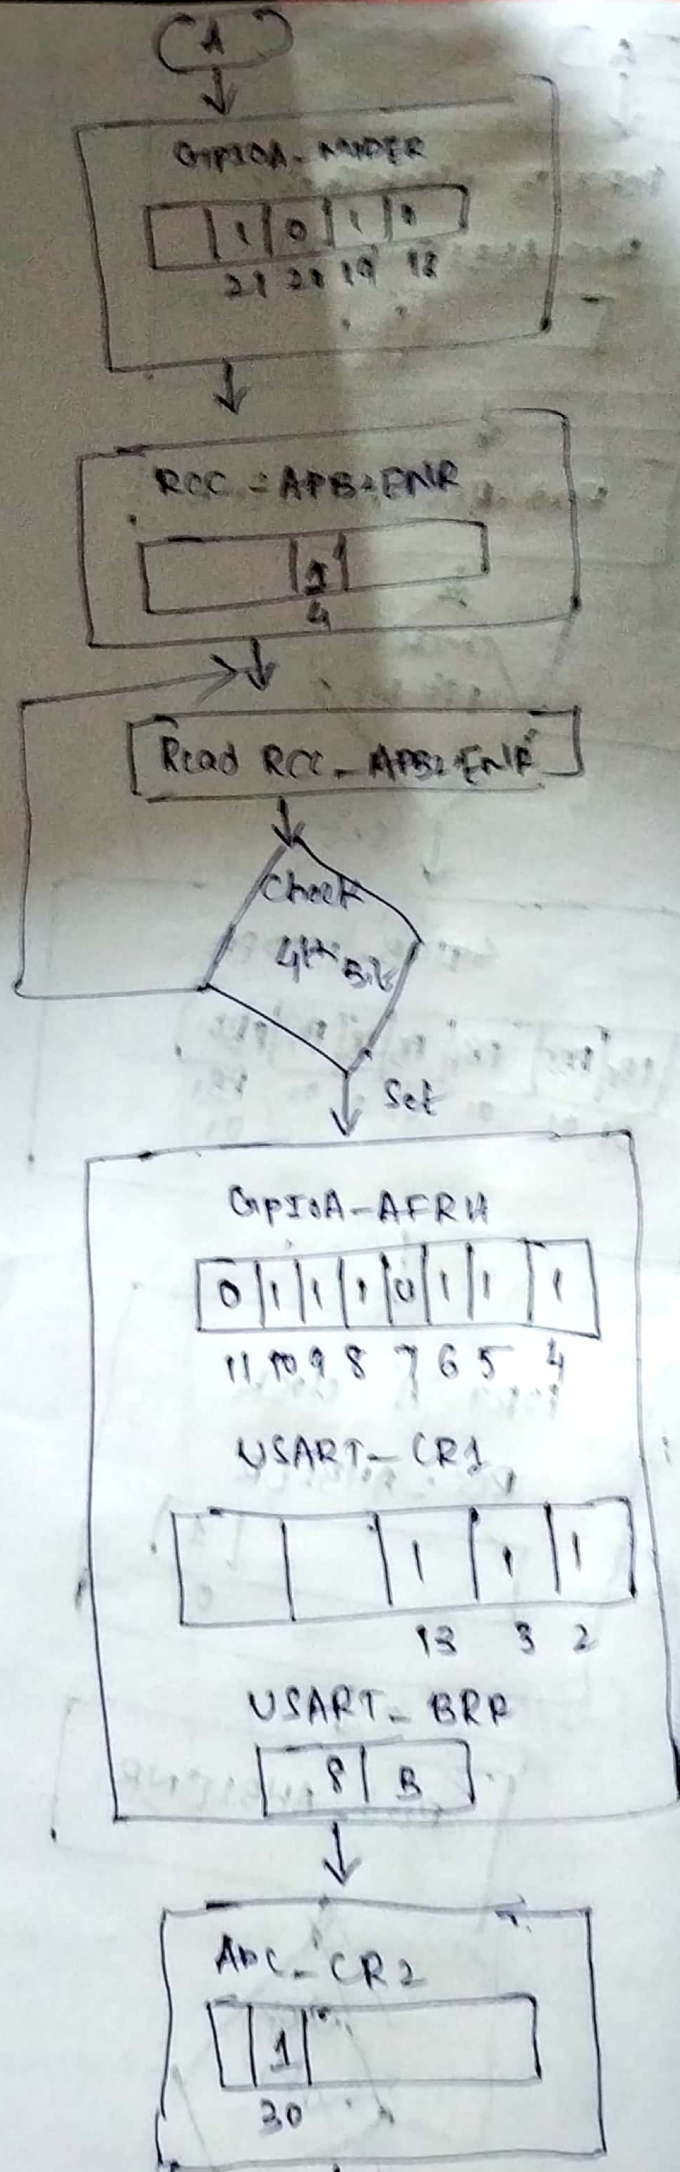 A
GPIOA-MODER
1 0 1 0
21 20 19 18
RCC-APB2ENR
1
4
Read RCC-APB2ENR
Check
4th Bit
Set
GPIOA-AFRH
0 1 1 1 0 1 1 1
11 10 9 8 7 6 5 4
USART-CR1
1 1 1
13 3 2
USART-BRR
8 B
ADC-CR2
1
30